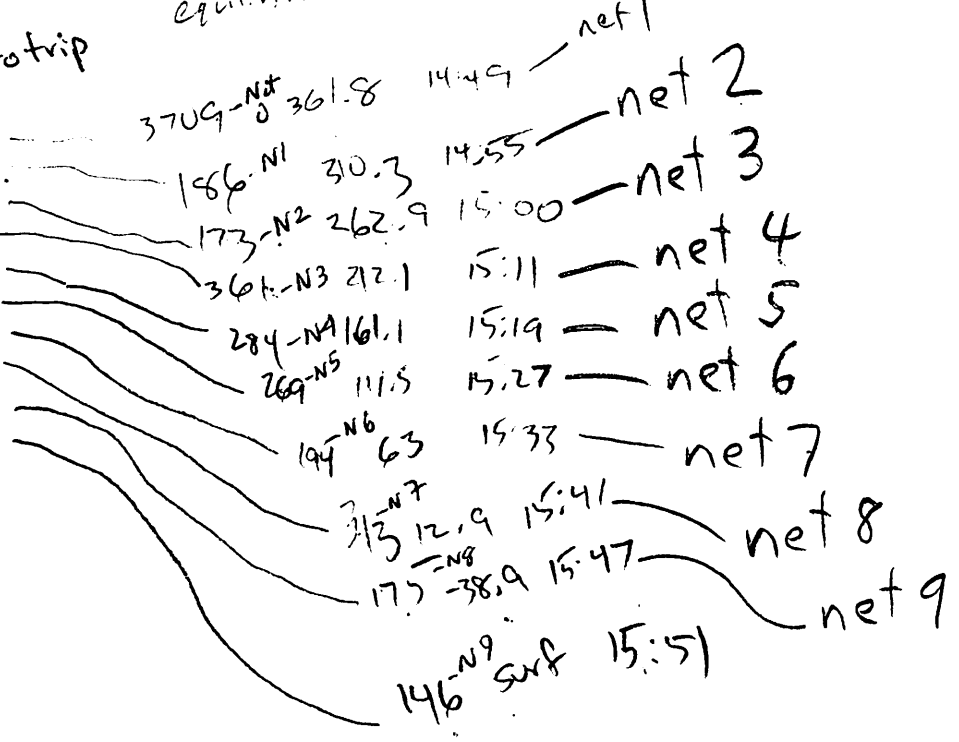 otrip
3709-Net 0 361.8 14:49 net 1
186-N1 310.3 14:55 net 2
173-N2 262.9 15:00 net 3
361-N3 212.1 15:11 net 4
284-N4 161.1 15:19 net 5
269-N5 111.5 15:27 net 6
194-N6 63 15:33 net 7
313-N7 12.9 15:41 net 8
175-N8 -38.9 15:47 net 9
146-N9 surf 15:51